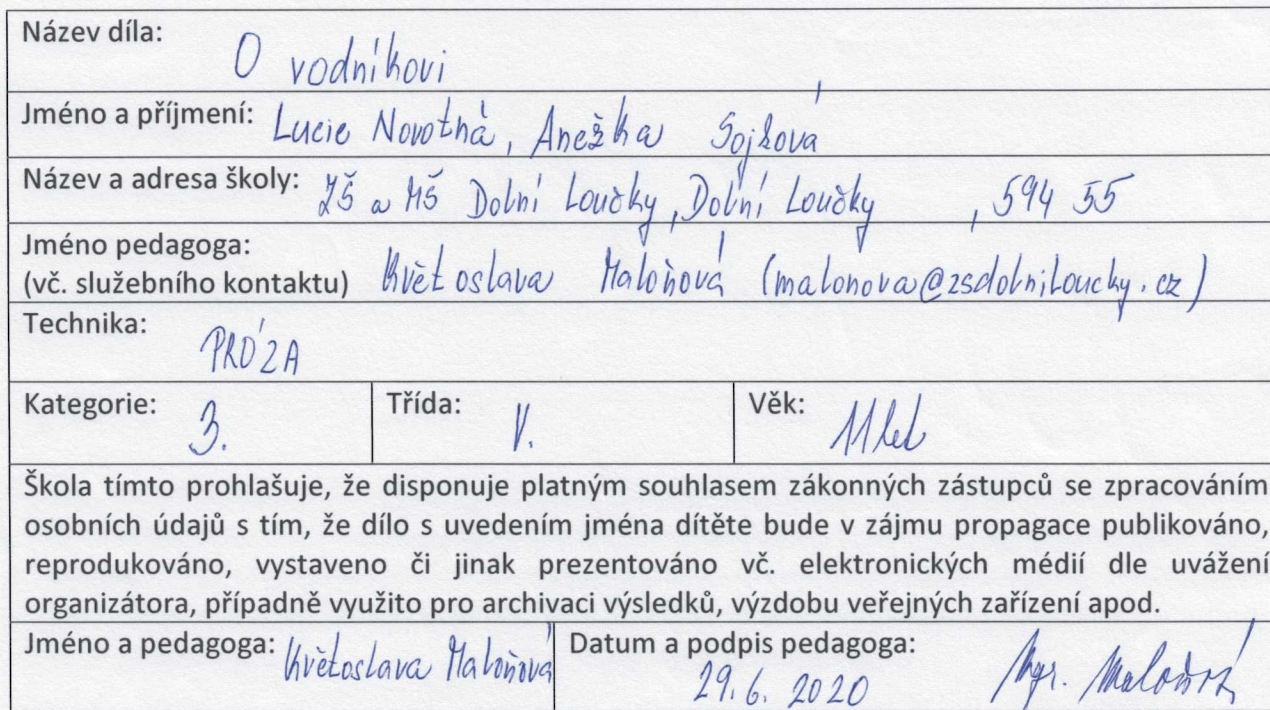 Název díla: O vodníkovi
Jméno a příjmení: Lucie Novotná, Anežka Sojková
Název a adresa školy: ZŠ a MŠ Dolní Loučky, Dolní Loučky , 594 55
Jméno pedagoga:
(vč. služebního kontaktu) Květoslava Maloňová (malonova@zsdolniloucky.cz)
Technika: PRÓZA
Kategorie: 3. Třída: V. Věk: 11 let
Škola tímto prohlašuje, že disponuje platným souhlasem zákonných zástupců se zpracováním
osobních údajů s tím, že dílo s uvedením jména dítěte bude v zájmu propagace publikováno,
reprodukováno, vystaveno či jinak prezentováno vč. elektronických médií dle uvážení
organizátora, případně využito pro archivaci výsledků, výzdobu veřejných zařízení apod.
Jméno a pedagoga: Květoslava Maloňová Datum a podpis pedagoga:
29.6. 2020 Mgr. Maloňová